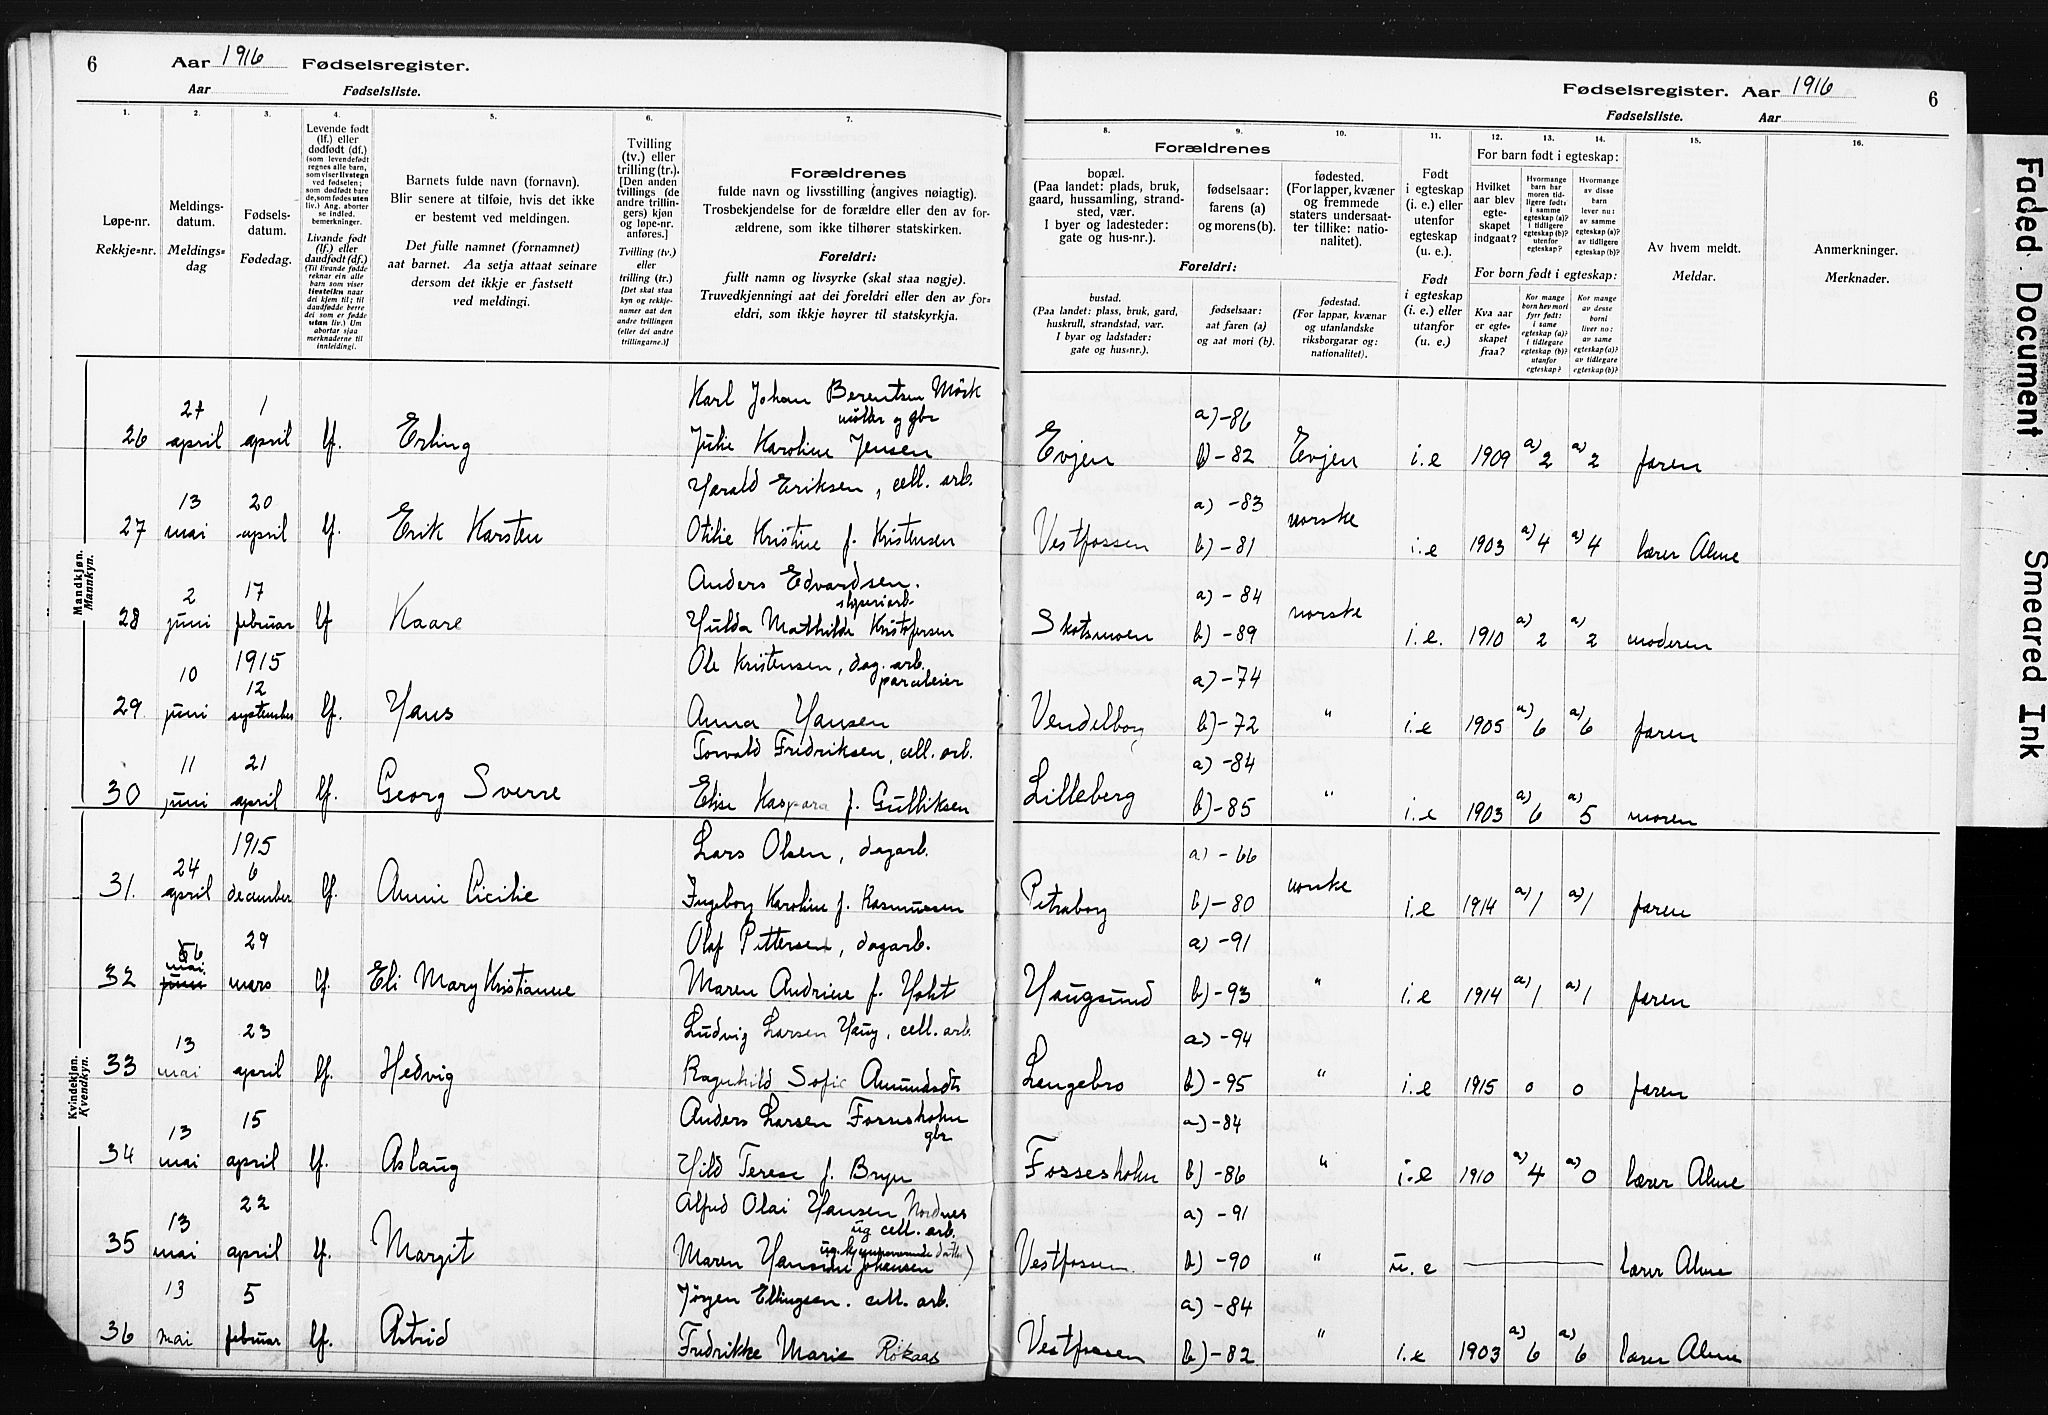 6 Aar 1916 Fødselsregister.
Aar Fødselsliste.
Fødselsregister. Aar 1916 6
Fødselsliste. Aar
1. 2. 3. 4. 5. 6. 7.
8. 9. 10. 11. 12. 13. 14. 15. 16.
Løpe-nr.
Rekkje-nr.
Meldings-
datum.
Meldings-
dag
Fødsels-
datum.
Fødedag.
Levende født
(lf.) eller
dødfødt (df.)
(som levendefødt
regnes alle barn,
som viser livstegn
ved fødselen;
som dødfødt bare
de, som fødes uten
liv.) Ang. aborter
se indled.
bemerkninger.
Livande født
(lf.) eller
daudfødt (df.)
(Til livande fødde
reknar ein alle
barn som viser
livsteikn naar
dei kjem til; til
daudfødde berre
dei som er fødde
utan liv.) Um
abortar sjaa
merknaderne til
innleidingi.
Barnets fulde navn (fornavn).
Blir senere at tilføie, hvis det ikke
er bestemt ved meldingen.
Det fulle namnet (fornamnet)
aat barnet. Aa setja attaat seinare
dersom det ikkje er fastsett
ved meldingi.
Tvilling
(tv.) eller
trilling (tr.).
[Den anden
tvillings (de
andre trillin-
gers) kjøn
og løpe-nr.
anføres.]
Tvilling (tv.)
eller
trilling (tr.)
[Det skal staa
kyn og rekkje-
numer aat den
andre tvillingen
(eller dei andre
trillingarne.)]
Forældrenes
fulde navn og livsstilling (angives nøiagtig).
Trosbekjendelse for de forældre eller den av for-
ældrene, som ikke tilhører statskirken.
Foreldri:
fullt namn og livsyrke (skal staa nøgje).
Truvedkjenningi aat dei foreldri eller den av for-
eldri, som ikkje høyrer til statskyrkja.
Forældrenes
bopæl.
(Paa landet: plads, bruk,
gaard, hussamling, strand-
sted, vær.
I byer og ladesteder:
gate og hus-nr.).
fødselsaar:
farens (a)
og morens (b).
fødested.
(For lapper, kvæner
og fremmede
staters undersaat-
ter tillike: natio-
nalitet).
Foreldri:
bustad.
(Paa landet: plass, bruk, gard,
huskrull, strandstad, vær.
I byar og ladstader:
gate og hus-nr.).
fødselsaar:
aat faren (a)
og aat mori (b).
fødestad.
(For lappar, kvænar
og utanlandske
riksborgarar og:
nationalitet).
Født
i egteskap
(i. e.) eller
utenfor
egteskap
(u. e.).
Født
i egteskap
(i. e.) eller
utanfor
(u. e.)
For barn født i egteskap:
Hvilket
aar blev
egte-
skapet
indgaat?
Hvormange
barn har
moren tid-
ligere født:
i samme
egteskap (a)?
i tidligere
egteskap (b)?
utenfor
egteskap?
Hvormange
av disse
barn
lever nu:
av samme
egteskap (a)?
av tidligere
egteskap (b)?
For born født i egteskap:
Kva aar
er egte-
skapet
fraa?
Kor mange
born hev mori
fyrr født:
i same
egteskap (a)?
i tidlegare
egteskap (b)?
utanfor
egteskap?
Kor mange
av desse
borni
liver no:
av same
egteskap (a)?
av tidlegare
egteskap (b)?
Av hvem meldt.
Meldar.
Anmerkninger.
Merknader.
Mandkjøn.
Mannkyn.
27 1 Karl Johan Berentsen Mörk
møller og gbr a) -86
26 april april lf. Erling Julie Karoline Jensen Evjen b) -82 Evjen i.e 1909 a) 2 a) 2 faren
13 20 Harald Eriksen, cell. arb. a) -83
27 mai april lf. Erik Karsten Otilie Kristine f. Kristensen Vestfossen b) -81 norske i.e 1903 a) 4 a) 4 lærer Alme
2 17 Anders Edvardsen.
sliperiarb. a) -84
28 juni februar lf Kaare Hulda Mathilde Kristofersen Skotsmoen b) -89 norske i.e. 1910 a) 2 a) 2 moderen
10 1915
12 Ole Kristensen, dag. arb.
parceleier a) -74
29 juni september lf. Hans Anna Hansen Vendelborg b) -72 " i.e 1905 a) 6 a) 6 faren
11 21 Torvald Fridriksen, cell. arb. a) -84
30 juni april lf. Georg Sverre Elise Kaspara f. Gulliksen Lilleberg b) -85 " i.e 1903 a) 6 a) 5 moren
Kvindekjøn.
Kvendkyn.
24 1915
6 Lars Olsen, dagarb. a) -66
31. april december lf. Anni Cicilie Ingeborg Karoline f. Rasmussen Petraborg b) -80 norske i.e 1914 a) 1 a) 1 faren
6 29 Olaf Pettersen, dagarb. a) -91
mai
32 juni mars lf. Eli Mary Kristianne Maren Andrine f. Holst Haugsund b) -93 " i.e 1914 a) 1 a) 1 faren
13 23 Ludvig Larsen Haug, cell. arb. a) -94
33 mai april lf. Hedvig Ragnhild Sofie Amundsdt Lengebro b) -95 " i.e 1915 0 0 faren
13 15 Anders Larsen Fossesholm
gbr a) -84
34 mai april lf. Aslaug Hild Terese f. Bryn Fossesholm b) -86 " i.e 1910 a) 4 a) 0 lærer Alme
13 22 Alfred Olai Hansen Nordnes
ug cell. arb. a) -91
ug. hjemmeværende datter)
35 mai april lf. Margit Maren Hansine Johansen Vestfossen b) -90 " u.e lærer Alme
13 5 Jörgen Ellingsen. cell. arb. a) -84
36 mai februar lf. Astrid Fredrikke Marie Rökaas Vestfossen b) -82 " i.e 1903 a) 6 a) 6 lærer Alme
Faded Document
Smeared Ink